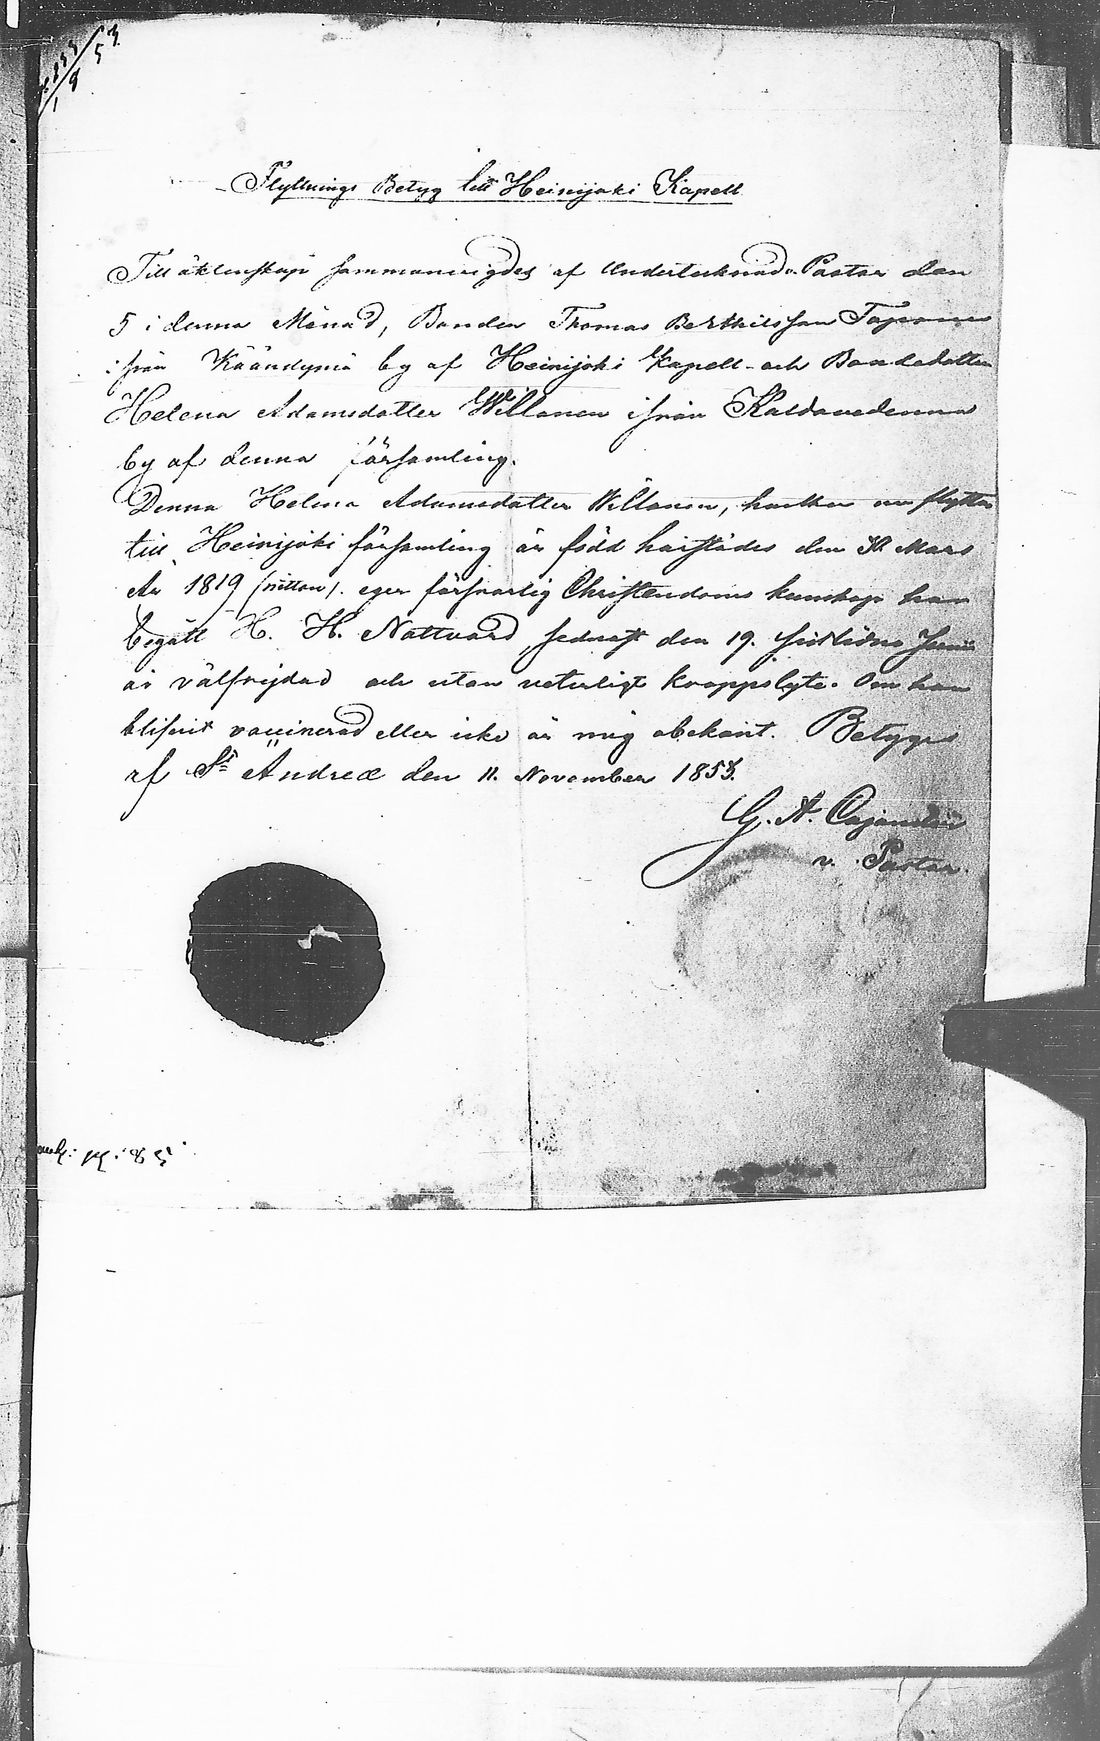 Flyttnings Betyg till Heinijoki Kapell
Till äktenskap sammanvigdes af Undertecknad Pastor den
5 i denna Månad, Bonden Thomas Berthilsson
ifrån Käändymä by af Heinijoki Kapell och Bondedotter
Helena Adamsdotter Willanen ifrån
by af denna församling.
Denna Helena Adamsdotter Willanen, hvilken nu flyttar
till Heinijoki församling är född härstädes den Mars
År 1819 (nitton). eger försvarlig Christendoms kunskap har
begått H. H. Nattvard sednast den 19. sistlidne Junii
är välfrejdad och utan veterligt kroppslyte. Om hon
blifvit vaccinerad eller icke är mig obekant. Betygas
af St Andreæ den 11. November 1853.
G. A. Cajander
v. Pastor.